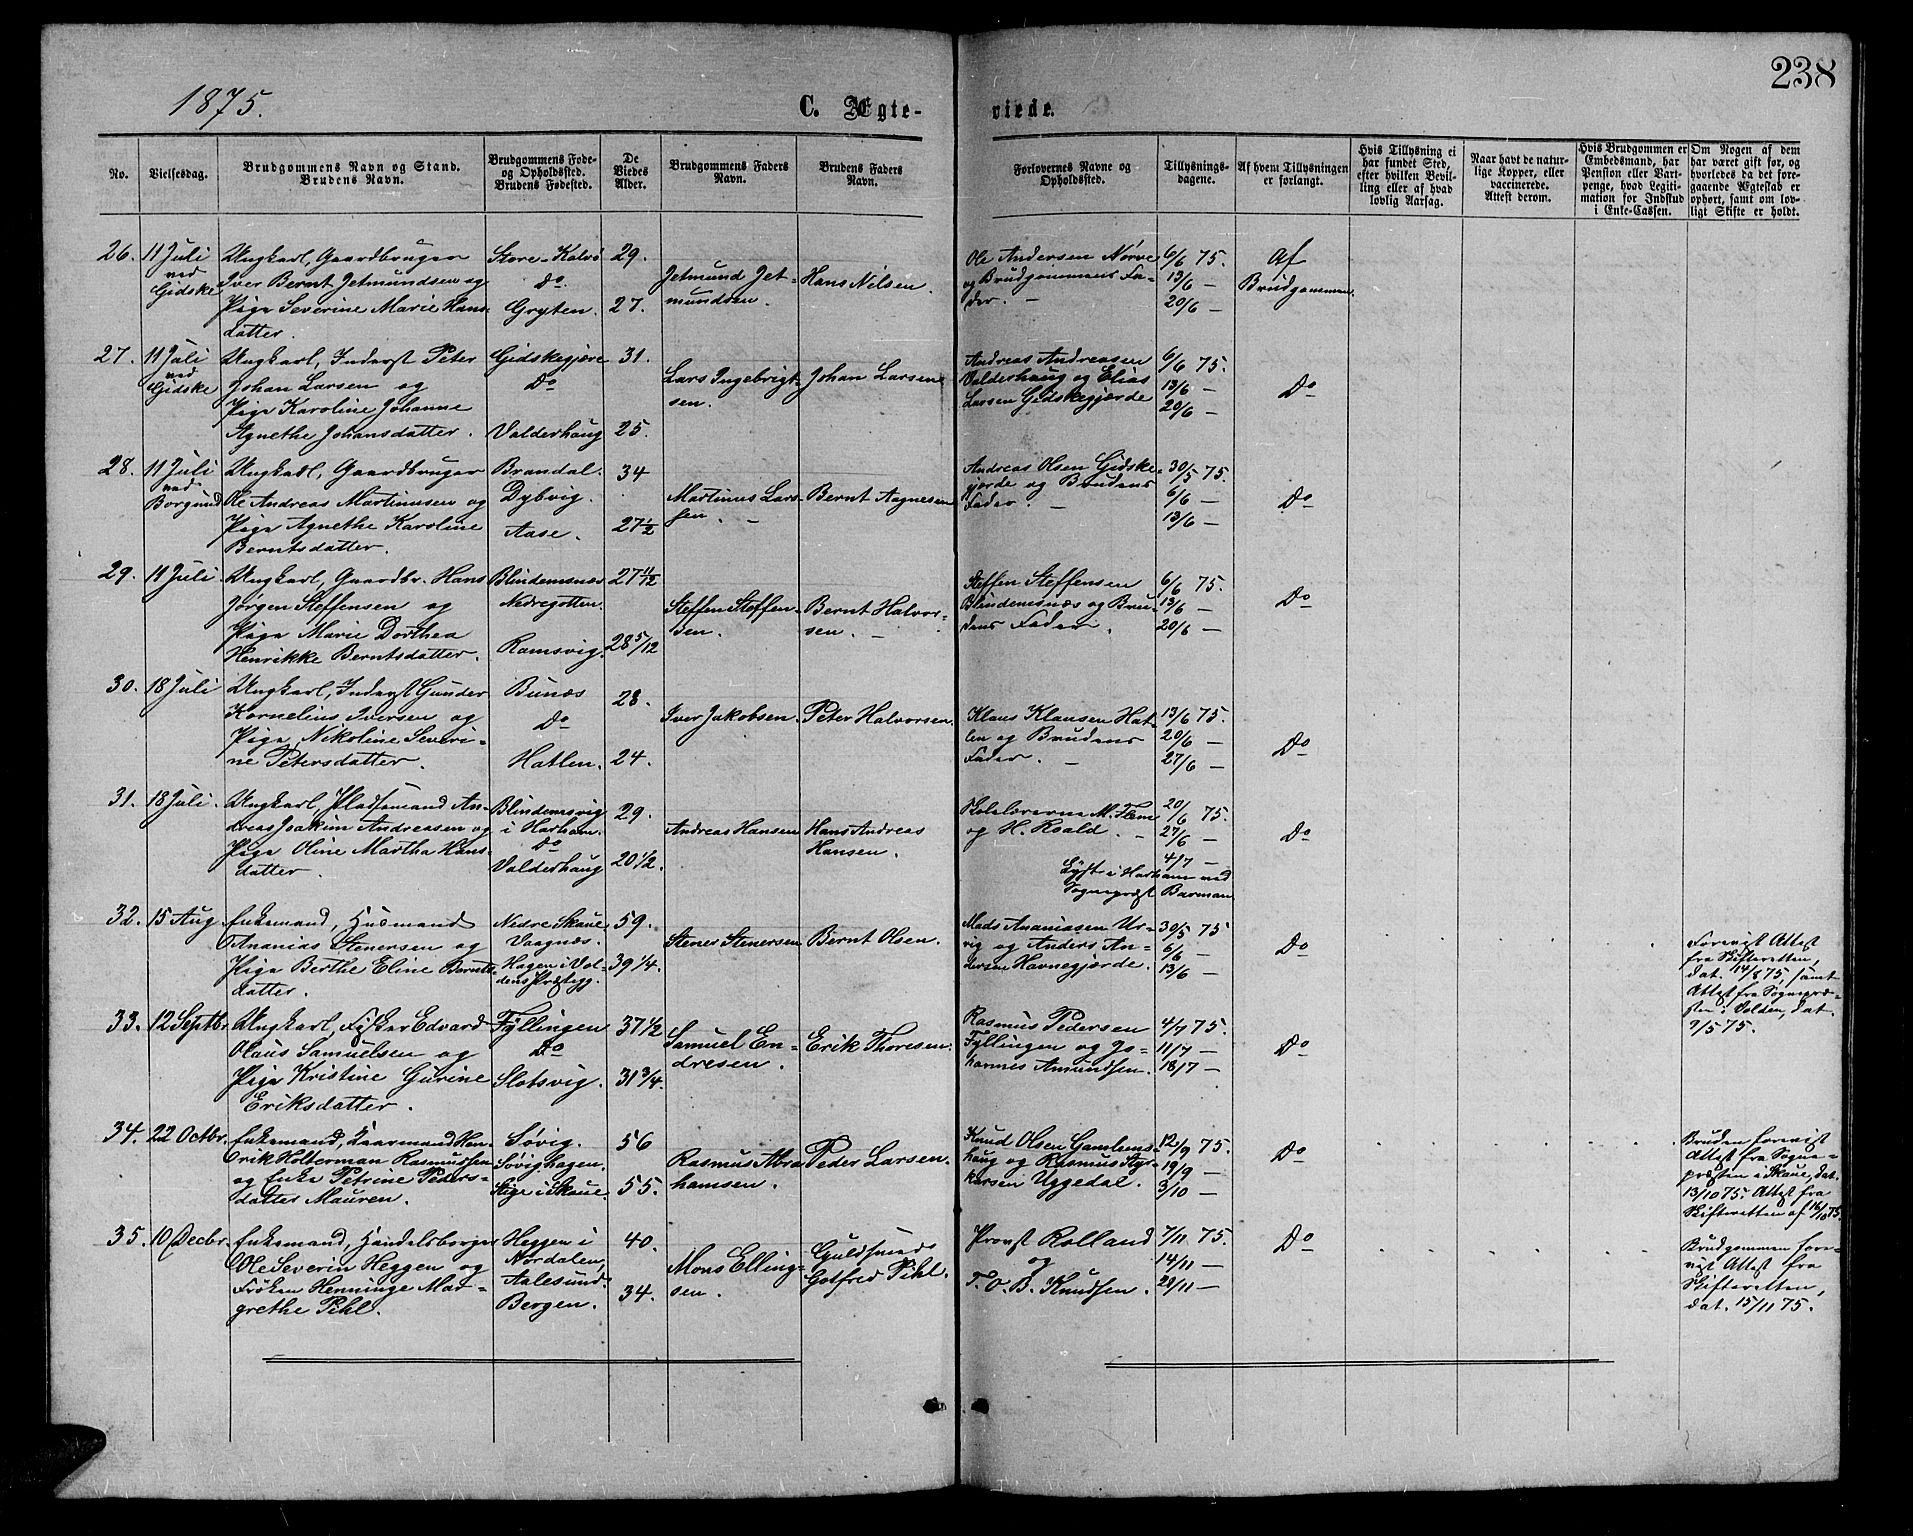 238
1875.
C. Ægte-
viede.
No.
Vielsesdag.
Brudgommens Navn og Stand.
Brudens Navn.
Brudgommens Føde-
og Opholdssted.
Brudens Fødested.
De
Viedes
Alder.
Brudgommens Faders
Navn.
Brudens Faders
Navn.
Forlovernes Navne og
Opholdssted.
Tillysnings-
dagene.
Af hvem Tillysningen
er forlangt.
Hvis Tillysning ei
har fundet Sted,
efter hvilken Bevil-
ling eller af hvad
lovlig Aarsag.
Naar havt de natur-
lige Kopper, eller
vaccinerede.
Attest derom.
Hvis Brudgommen er
Embedsmand, har
Pension eller Vart-
penge, hvad Legiti-
mation for Indskud
i Enke-Cassen.
Om Nogen af dem
har været gift før, og
hvorledes da det fore-
gaaende Ægteskab er
ophørt, samt om lov-
ligt Skifte er holdt.
26.
11 Juli
ved
Gidske
Ungkarl, Gaardbruger
Iver Bernt Jetmundsen og
Pige Severine Marie Hans-
datter.
Store-Kalvø
Do
Gryten.
29.
27.
Jetmund Jet-
mundsen.
Hans Nilsen.
Ole Andersen Nørve
og Brudgommens Fa-
der. —
6/6 75.
13/6 —
20/6 —
Af
Brudgommen.
27.
11 Juli
ved
Gidske
Ungkarl, Inderst Peter
Johan Larsen og
Pige Karoline Johanne
Agnethe Johansdatter.
Gidskegjøre
Do
Valderhaug
31.
25.
Lars Ingebrigt-
sen.
Johan Larsen
Andreas Andreassen
Valderhaug og Elias
Larsen Gidskegjørde
6/6 75.
13/6 —
20/6 —
Do
28.
11 Juli
ved
Borgund
Ungkarl, Gaardbruger
Ole Andreas Martinusen og
Pige Agnethe Karoline
Berntsdatter.
Brandal.
Dybvig.
Aase.
34
27 1/2
Martinus Lars-
sen. —
Bernt Aagnesen
Andreas Olsen Gidske-
gjørde og Brudens
Fader. —
30/5 75.
6/6 —
13/6 —
Do
29.
11 Juli.
Ungkarl, Gaardbr. Hans
Jørgen Steffensen og
Pige Marie Dorthea
Henrikke Berntsdatter.
Blindemsnæs
Nedregotten.
Ramsvig.
27 11/12
28 5/12
Steffen Steffen-
sen.
Bernt Halvor-
sen. —
Steffen Steffensen
Blindemsnæs og Bru-
dens Fader.
6/6 75.
13/6 —
20/6 —
Do
30.
18 Juli
Ungkarl, Inderst Gunder
Kornelius Iversen og
Pige Nikoline Severi-
ne Petersdatter.
Bunæs
Do
Hatlen.
28.
24.
Iver Jakobsen.
Peter Halvorsen.
Klaus Klausen Hat-
len og Brudens
Fader. —
13/6 75.
20/6 —
27/6 —
Do
31.
18 Juli.
Ungkarl, Pladsemand An-
dreas Joakim Andreasen og
Pige Oline Martha Hans-
datter.
Blindemsvig
i Harham.
Do
Valderhaug
29.
20 1/2.
Andreas Hansen
Hans Andreas
Hansen.
Skolelærerne M. Flem
og H. Roald. —
20/6 75.
27/6 —
4/7 —
Lyst i Harham ved
Sognepræst Barman
Do
32.
15 Aug.
Enkemand, Husmand
Ananias Stenersen og
Pige Berthe Eline Bernts-
datter.
Nedre Skaue
Vaagnæs.
Hagen i Vol-
dens Præstegj.
59.
39 1/4.
Stener Stenersen
Bernt Olsen.
Mads Ananiassen Ur-
vig og Anders An-
dersen Havnegjørde.
30/5 75
6/6 —
13/6 —
Do
Forevist Attest
fra Skifteretten,
dat. 14/8 75, samt
Attest fra Sognepræ-
sten i Volden, dat.
9/5 75.
33.
12 Septbr.
Ungkarl, Fisker Edvard
Olaus Samuelsen og
Pige Kristine Gurine
Eriksdatter.
Fyllingen
Do
Slotsvig.
37 1/2
31 3/4.
Samuel En-
dresen.
Erik Thoresen.
Rasmus Pedersen
Fyllingen og Jo-
hannes Amundsen.
4/7 75.
11/7 —
18/7 —
Do
34.
22 Octbr.
Enkemand, Kaarmand Hen-
drik Holterman Rasmussen
og Enke Petrine Peders-
datter Mauren.
Søvig.
Søvighagen.
Stige i Skaue.
56
55.
Rasmus Abra-
hamsen.
Peder Larsen.
Knud Olsen Gamlems-
haug og Rasmus Styr-
karsen Uggedal.
12/9 75.
19/9 —
3/10 —
Do
Bruden forevist
Attest fra Sogne-
præsten i Skaue, dat.
13/10 75. Attest fra
Skifteretten af 16/10 75.
35.
10 Decbr.
Enkemand, Handelsborger
Ole Severin Heggen og
Frøken Henninge Mar-
grethe Pihl.
Heggen i
Nordalen,
Aalesund.
Bergen.
40.
34.
Mons Elling-
sen.
Guldsmed
Gotfred Pihl.
Provst Rolland
og
T. O. B. Knudsen.
7/11 75.
14/11 —
20/11 —
Do
Brudgommen fore-
vist Attest fra
Skifteretten,
dat. 15/11 75.